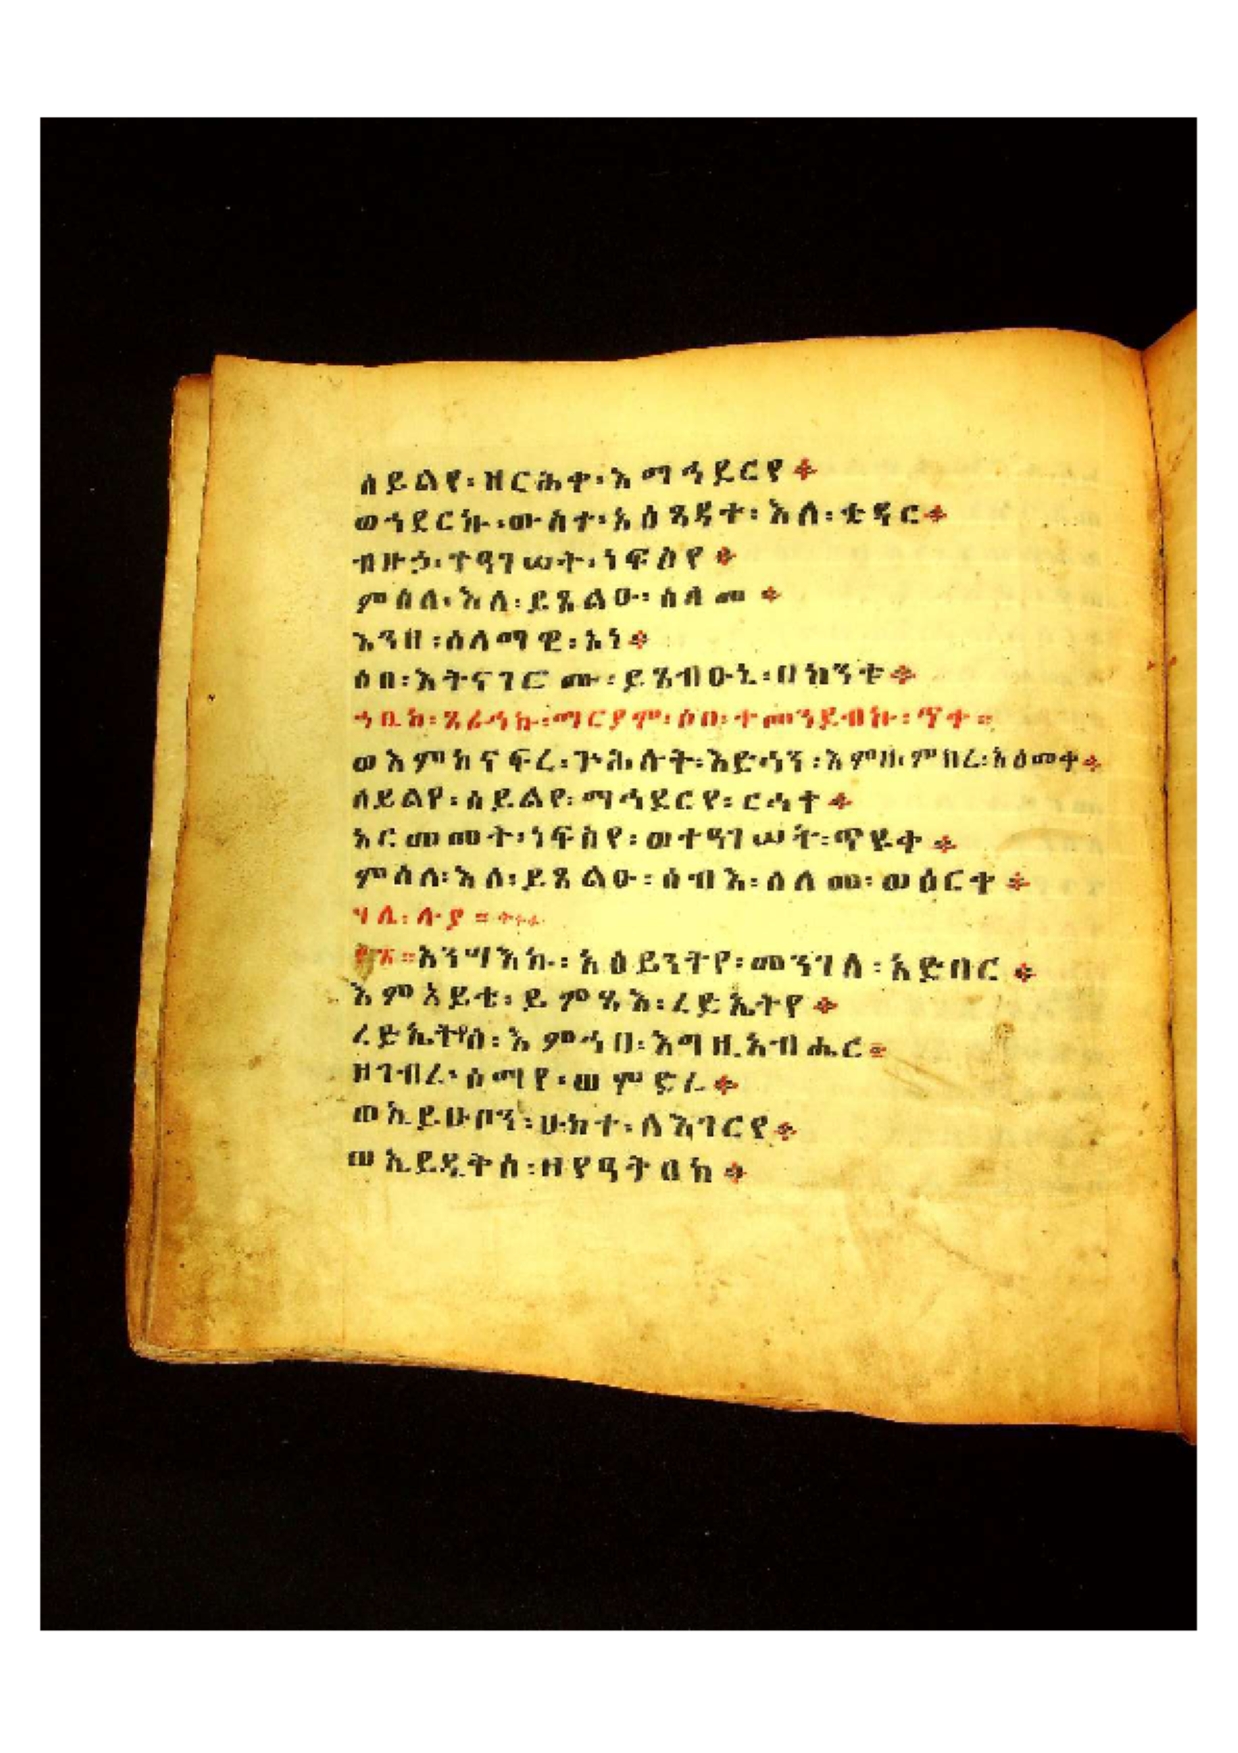 ሰይልየ፡ ዘርሕቀ፡ እማኅደርየ ፨
ወኀደርኩ፡ ውስተ፡ አዕጻዳተ፡ እለ፡ ቄዳር ፨
ብዙኃ፡ ተዓገሠት፡ ነፍስየ ፨
ምስለ፡ እለ፡ ይጼልዑ፡ ሰላመ ፨
አንሰ፡ ሰላማዊ፡ አነ ፨
ሶበ፡ እትናገሮሙ፡ ይፄብዑኒ፡ በከንቱ ፨
ኀቤከ፡ ጸራኅኩ፡ ማርያም፡ ሶበ፡ ተመንደብኩ፡ ጥቀ ።
ወእምከናፍረ፡ ጕሕሉት፡ አድኅን፡ እምዙ፡ ምክረ፡ አዕመቀ ፨
ሰይልየ፡ ሰይልየ፡ ማኅደርየ፡ ርኅቀ ፨
አርመመት፡ ነፍስየ፡ ወተዓገሠት፡ ጥዩቀ ፨
ምስለ፡ እለ፡ ይጼልዑ፡ ሰብእ፡ ሰላመ፡ ወዕርቀ ፨
ሃሌ፡ ሉያ ።
አንሣእኩ፡ አዕይንትየ፡ መንገለ፡ አድበር ፨
እምአይቴ፡ ይምጻእ፡ ረድኤትየ ፨
ረድኤትየሰ፡ እምኀበ፡ እግዚአብሔር ።
ዘገብረ፡ ሰማየ፡ ወምድረ ፨
ወኢይሁቦን፡ ሁከተ፡ ለእገርየ ፨
ወኢይዲቅስ፡ ዘየዓቅበከ ፨